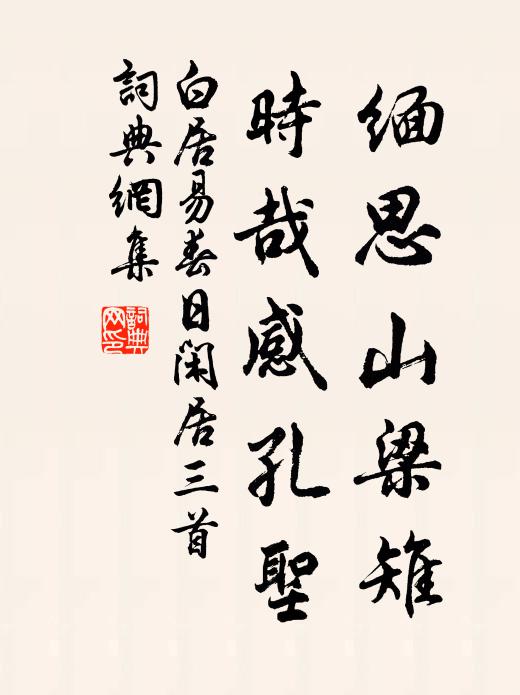 缅思山梁雉
時哉感孔聖
白居易春日闲居三首
詞典網集
詞典网印